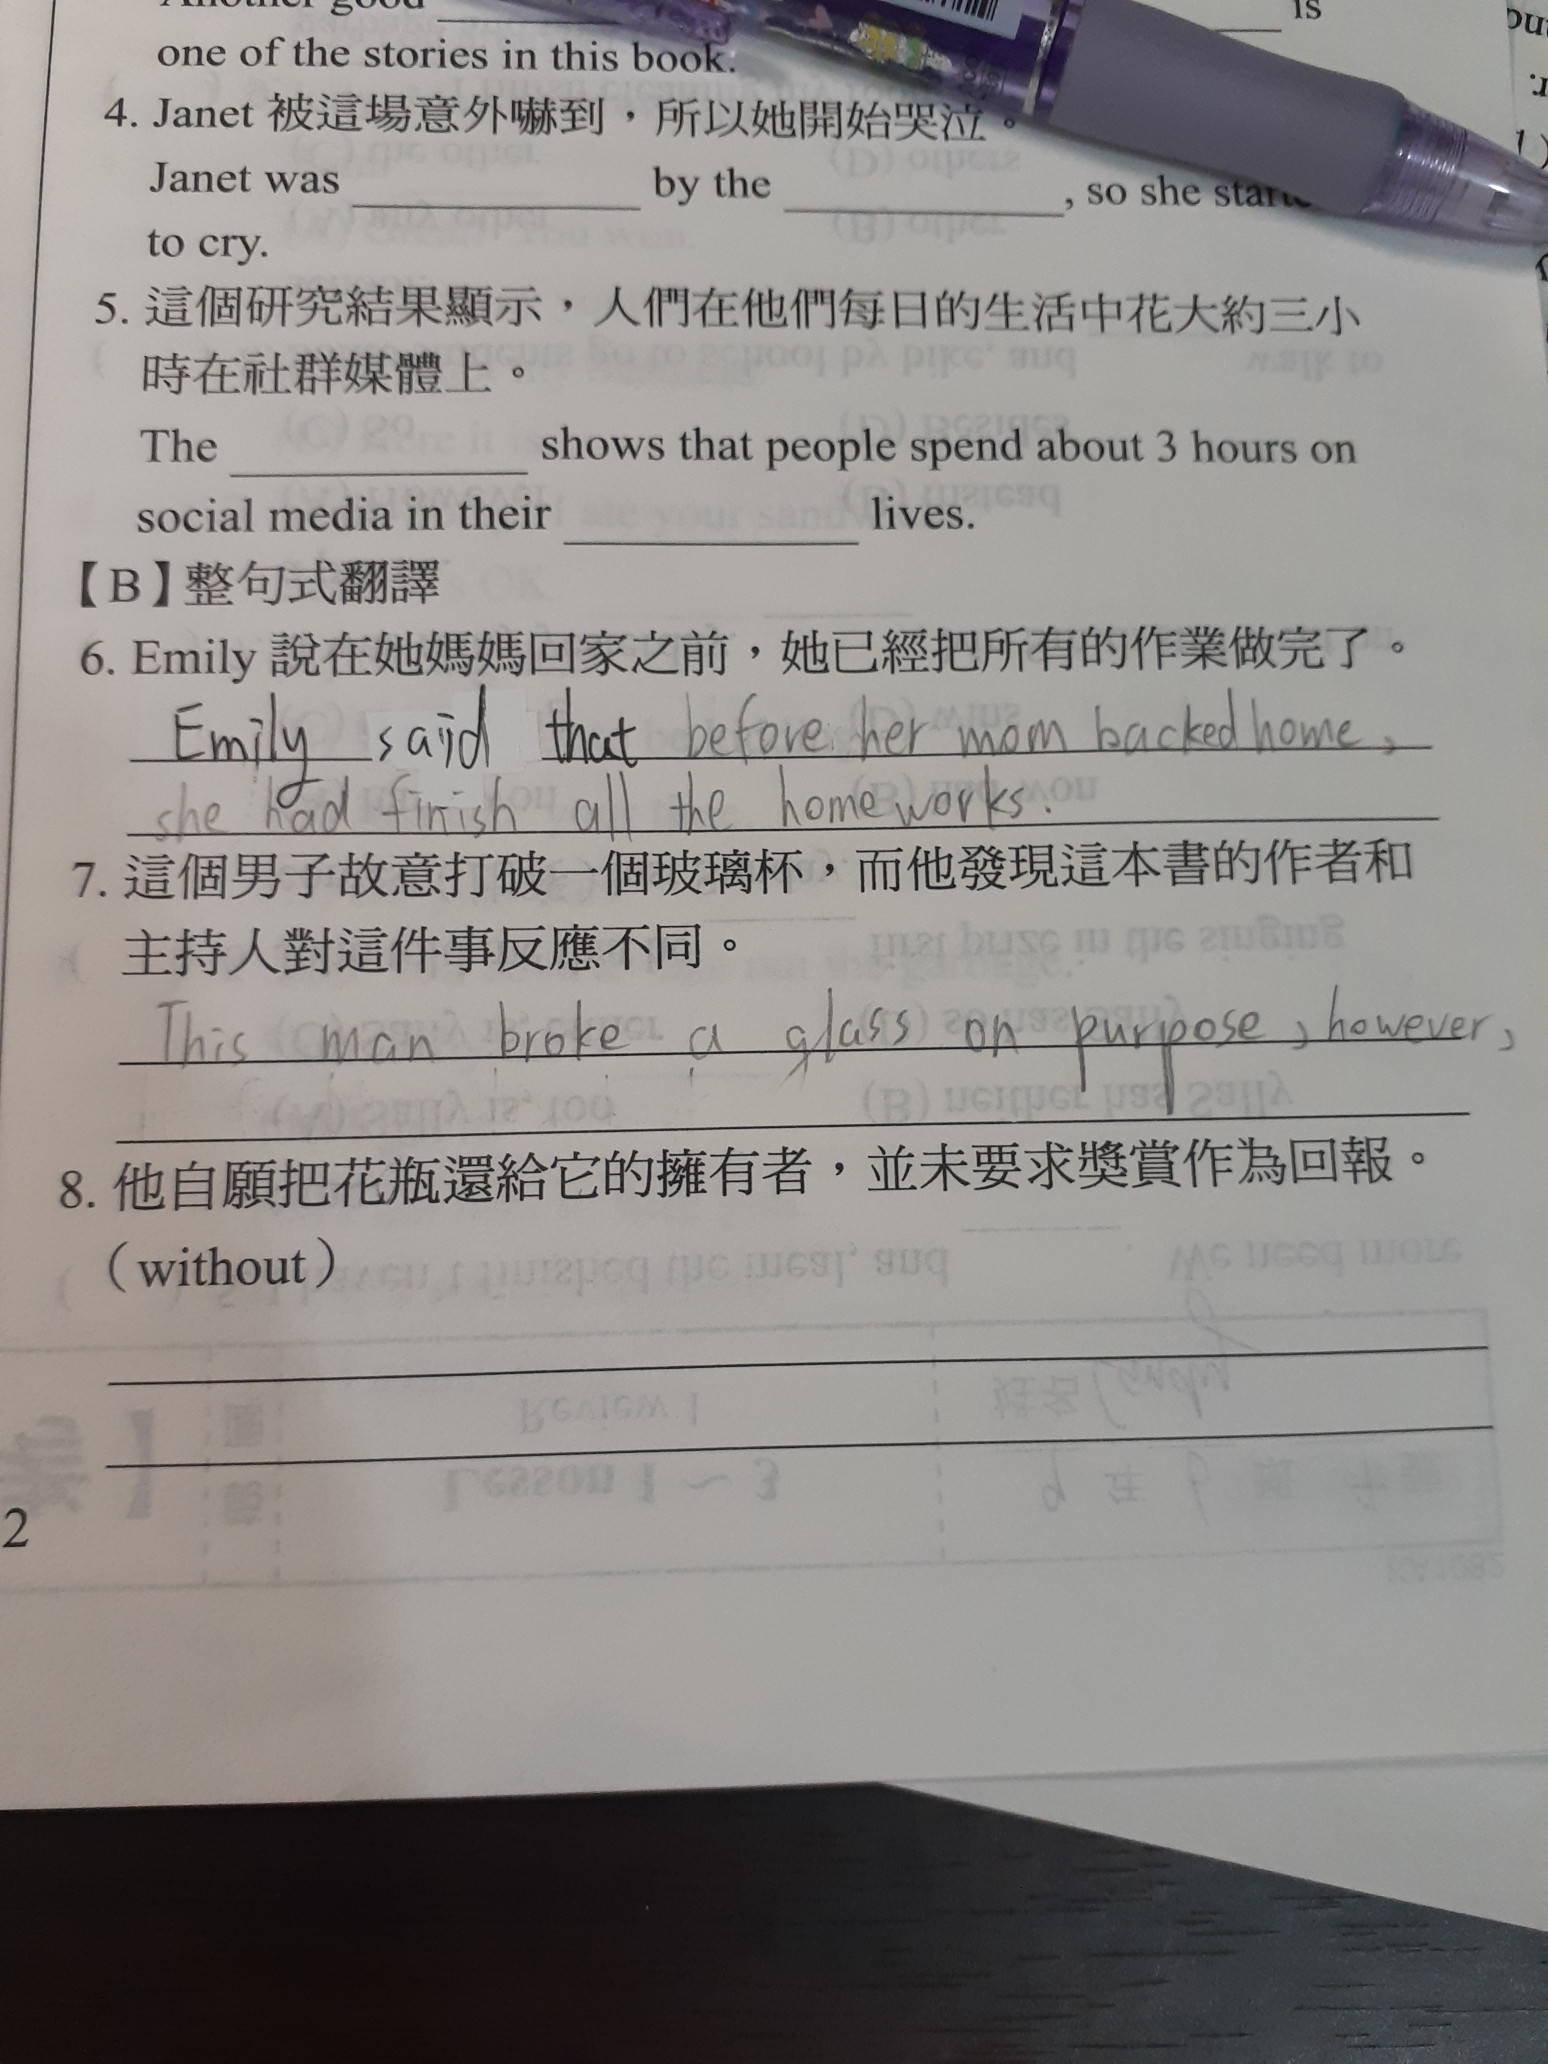 Another good ____________ is
one of the stories in this book.
4. Janet 被這場意外嚇到，所以她開始哭泣。
Janet was ____________ by the ____________, so she
to cry.
5. 這個研究結果顯示，人們在他們每日的生活中花大約三小
時在社群媒體上。
The ____________ shows that people spend about 3 hours on
social media in their ____________ lives.
【B】整句式翻譯
6. Emily 說在她媽媽回家之前，她已經把所有的作業做完了。
Emily said that before her mom backed home,
she had finish all the homeworks.
7. 這個男子故意打破一個玻璃杯，而他發現這本書的作者和
主持人對這件事反應不同。
This man broke a glass on purpose, however,
8. 他自願把花瓶還給它的擁有者，並未要求獎賞作為回報。
（without）
2